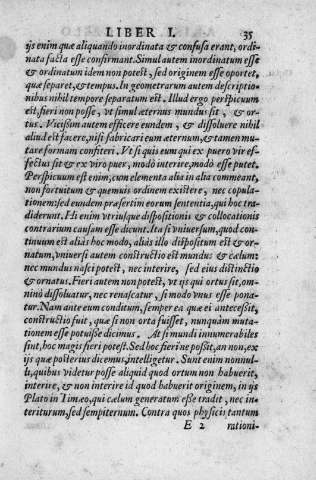 LIBER I. 35
ijs enim quæ aliquando inordinata & confusa erant, ordi-
nata facta esse confirmant. Simul autem inordinatum esse
& ordinatum idem non potest, sed originem esse oportet,
quæ separet, & tempus. In geometrarum autem descriptio
nibus nihil tempore separatum est. Illud ergo perspicuum
est, fieri non posse, vt simul æternus mundus sit, & or-
tus. Vicissim autem efficere eundem, & dissoluere nihil
aliud est facere, nisi fabricari eum æternum, & tamen mu-
tare formam confiteri. Vt si quis eum qui ex puero vir ef-
fectus sit & ex viro puer, modò interire, modò esse putet.
Perspicuum est enim, cum elementa alia in alia commeant,
non fortuitum & quemuis ordinem existere, nec copula-
tionem: sed eundem præsertim eorum sententia, qui hoc tra-
diderunt. Hi enim vtriusque dispositionis & collocationis
contrarium causam esse dicunt. Ita si vniuersum, quod con-
tinuum est aliàs hoc modo, aliàs illo dispositum est & or-
natum, vniuersi autem constructio est mundus & cælum:
nec mundus nasci potest, nec interire, sed eius distinctio
& ornatus. Fieri autem non potest, vt ijs qui ortus sit, om-
ninò dissoluatur, nec renascatur, si modò vnus esse pona-
tur. Nam ante eum conditum, semper ea quæ ei antecessit,
constructio fuit, quæ si non orta fuisset, nunquàm muta-
tionem esse potuisse dicimus. At si mundi innumerabiles
sint, hoc magis fieri potest. Sed hoc fieri ne possit, an non, ex
ijs quæ posterius dicemus, intelligetur. Sunt enim nonnul-
li, quibus videtur posse aliquid quod ortum non habuerit,
interire, & non interire id quod habuerit originem, in ijs
Plato in Timæo, qui cælum generatum esse tradit, nec in-
teriturum, sed sempiternum. Contra quos physicis tantum
E 2 rationi-